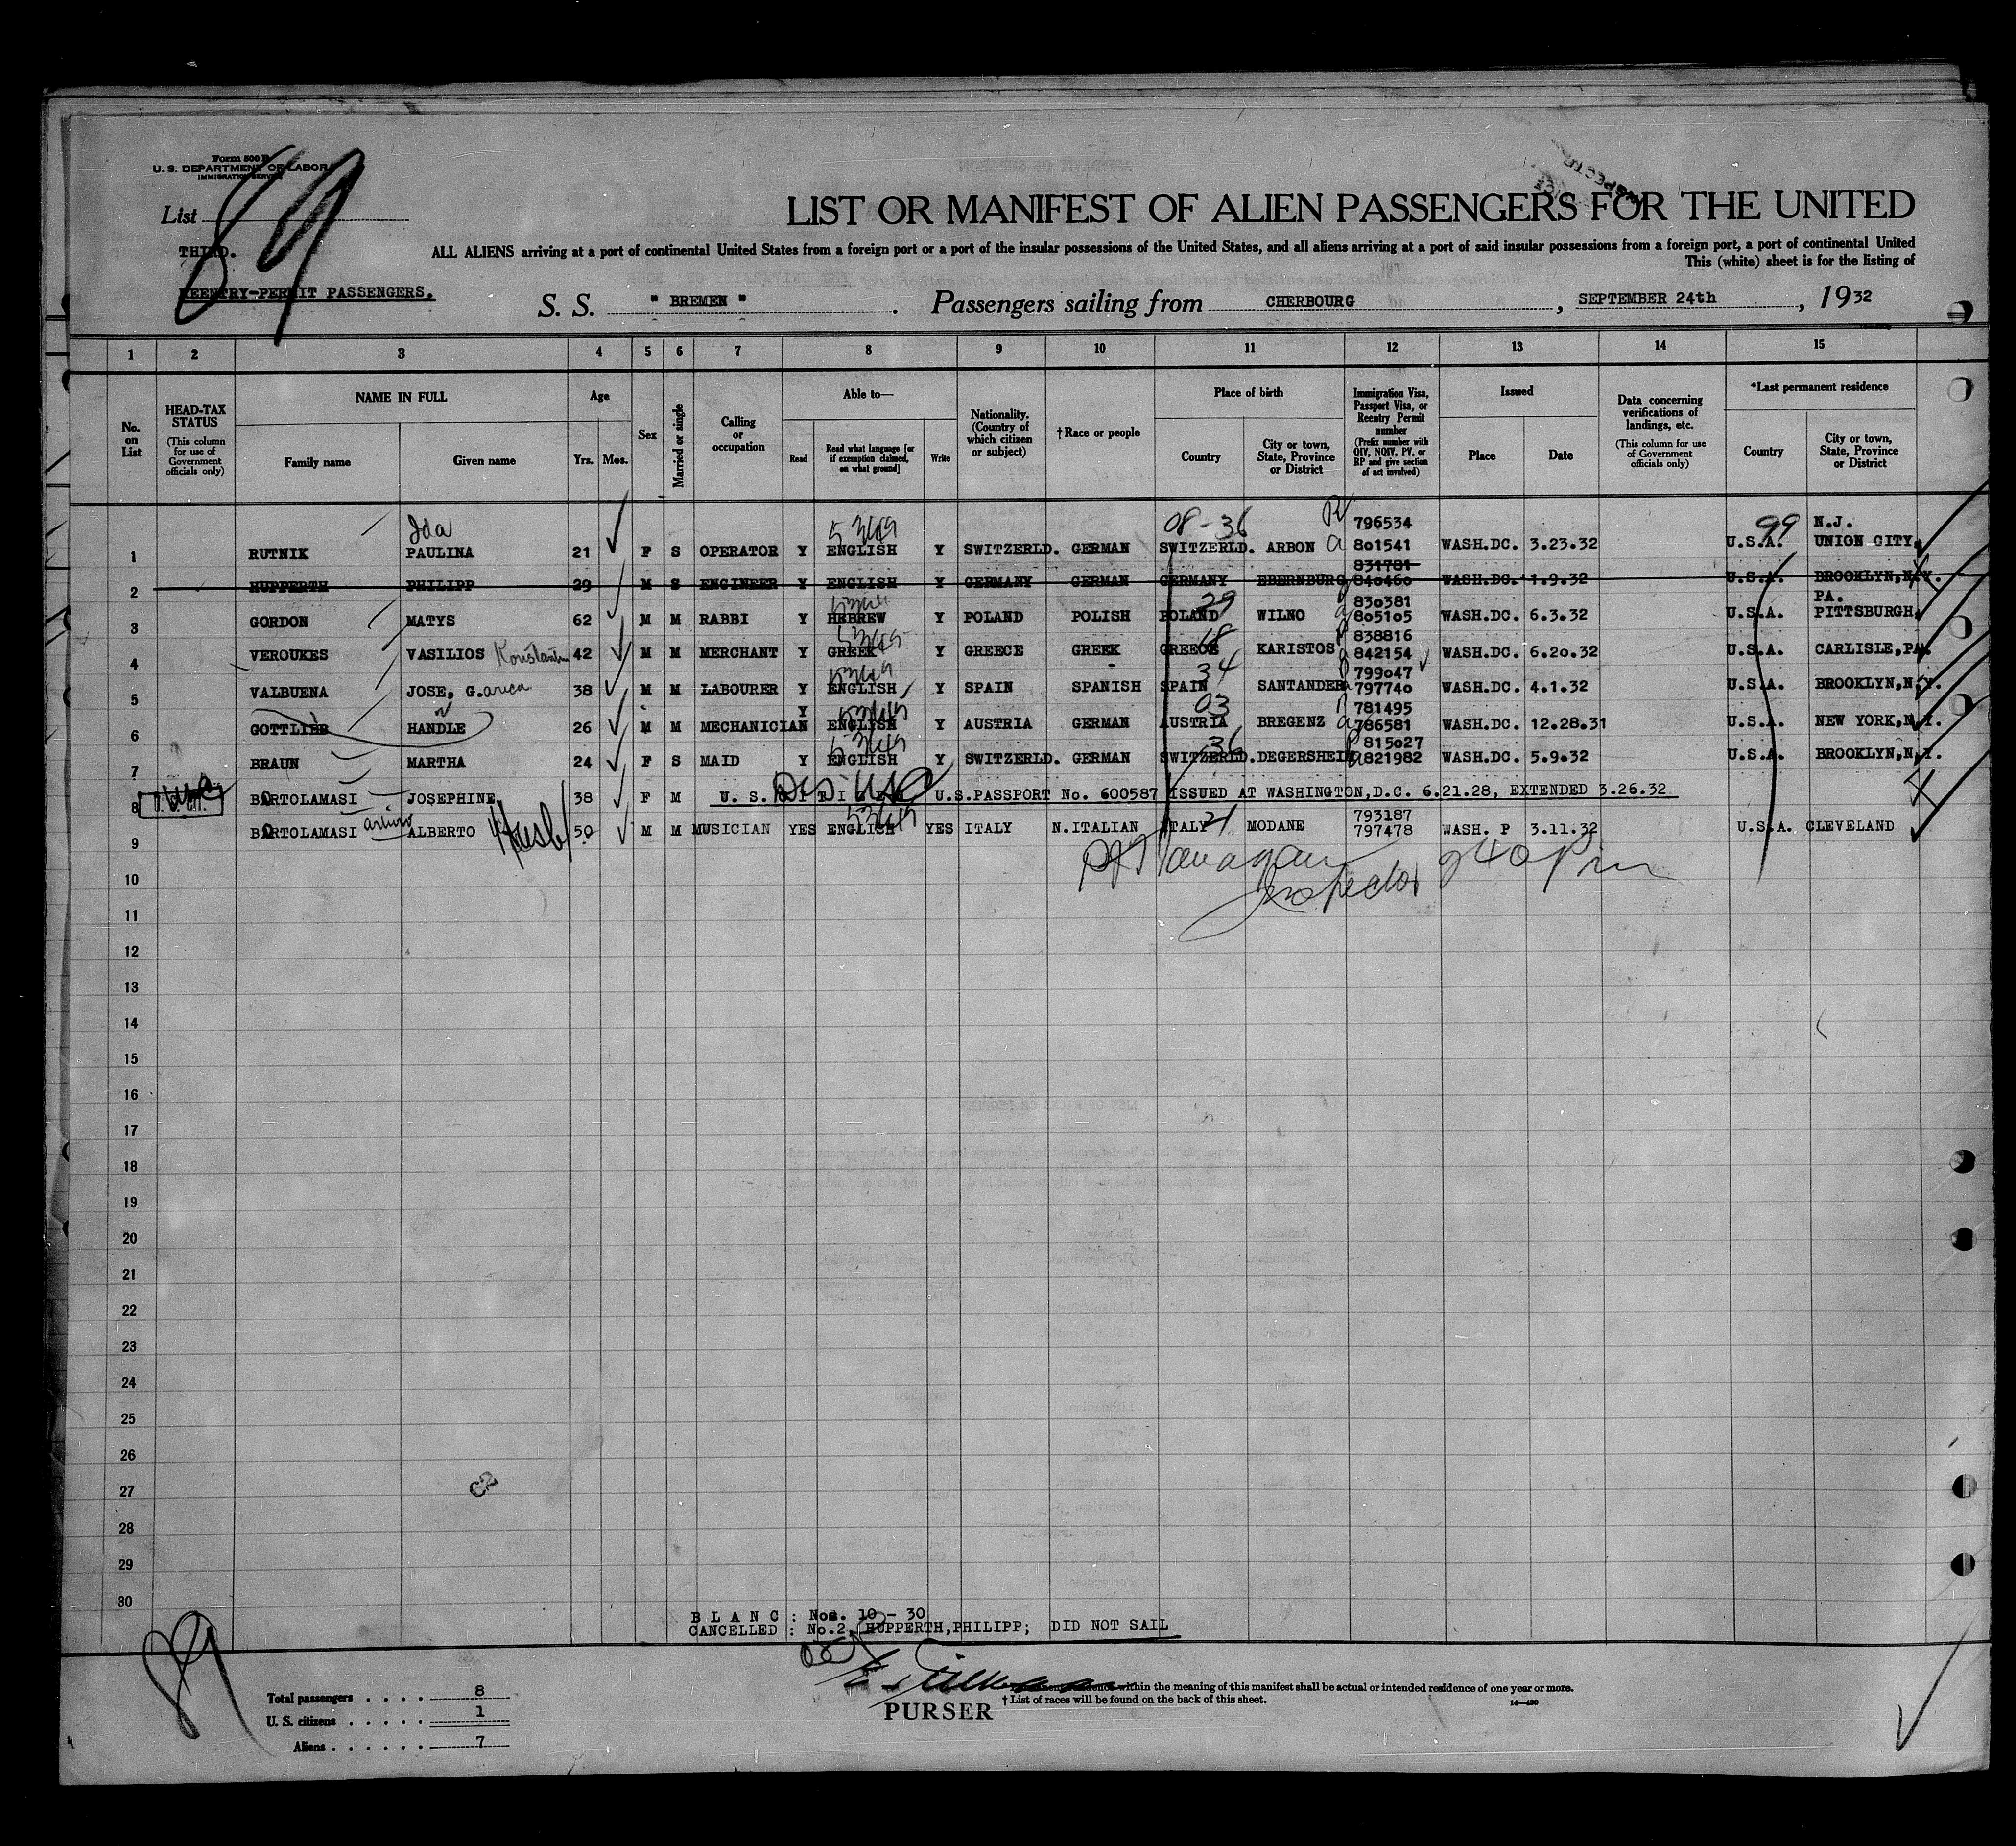 Form 500 B
U. S. DEPARTMENT OF LABOR
IMMIGRATION SERVICE
List 89
THIRD.
REENTRY-PERMIT PASSENGERS.
LIST OR MANIFEST OF ALIEN PASSENGERS FOR THE UNITED
ALL ALIENS arriving at a port of continental United States from a foreign port or a port of the insular possessions of the United States, and all aliens arriving at a port of said insular possessions from a foreign port, a port of continental United
This (white) sheet is for the listing of
S. S. " BREMEN " . Passengers sailing from CHERBOURG , SEPTEMBER 24th , 1932
1 2 3 4 5 6 7 8 9 10 11 12 13 14 15
No. on List
HEAD-TAX STATUS (This column for use of Government officials only)
NAME IN FULL Family name Given name
Age Yrs. Mos.
Sex
Married or single
Calling or occupation
Able to— Read Read what language [or if exemption claimed, on what ground] Write
Nationality. (Country of which citizen or subject)
†Race or people
Place of birth Country City or town, State, Province or District
Immigration Visa, Passport Visa, or Reentry Permit number (Prefix number with QIV, NQIV, PV, or RP and give section of act involved)
Issued Place Date
Data concerning verifications of landings, etc. (This column for use of Government officials only)
*Last permanent residence Country City or town, State, Province or District
Ida 08-36 796534 99 N.J.
1 RUTNIK PAULINA 21 F S OPERATOR Y ENGLISH Y SWITZERLD. GERMAN SWITZERLD. ARBON 801541 WASH.DC. 3.23.32 U.S.A. UNION CITY,
831781
2 HUPPERTH PHILIPP 29 M S ENGINEER Y ENGLISH Y GERMANY GERMAN GERMANY EBERNBURG 840460 WASH.DC. 1.9.32 U.S.A. BROOKLYN,N.Y.
29 830381 PA.
3 GORDON MATYS 62 M M RABBI Y HEBREW Y POLAND POLISH POLAND WILNO 805105 WASH.DC. 6.3.32 U.S.A. PITTSBURGH,
18 838816
4 VEROUKES VASILIOS 42 M M MERCHANT Y GREEK Y GREECE GREEK GREECE KARISTOS 842154 WASH.DC. 6.20.32 U.S.A. CARLISLE,PA.
34 799047
5 VALBUENA JOSE, G.arcia 38 M M LABOURER Y ENGLISH Y SPAIN SPANISH SPAIN SANTANDER 797740 WASH.DC. 4.1.32 U.S.A. BROOKLYN,N.Y.
03 781495
6 GOTTLIEB HANDLE 26 M M MECHANICIAN Y ENGLISH Y AUSTRIA GERMAN AUSTRIA BREGENZ 786581 WASH.DC. 12.28.31 U.S.A. NEW YORK,N.Y.
36 815027
7 BRAUN MARTHA 24 F S MAID Y ENGLISH Y SWITZERLD. GERMAN SWITZERLD. DEGERSHEIM 821982 WASH.DC. 5.9.32 U.S.A. BROOKLYN,N.Y.
8 BARTOLAMASI JOSEPHINE 38 F M U. S. CITIZEN U.S.PASSPORT No. 600587 ISSUED AT WASHINGTON,D.C. 6.21.28, EXTENDED 3.26.32
793187
9 BARTOLAMASI arturo ALBERTO Husb 50 M M MUSICIAN YES ENGLISH YES ITALY N.ITALIAN ITALY 21 MODANE 797478 WASH. P 3.11.32 U.S.A. CLEVELAND
Inspector
10
11
12
13
14
15
16
17
18
19
20
21
22
23
24
25
26
27
28
29
30
B L A N C : Nos. 10 - 30
CANCELLED : No.2, HUPPERTH,PHILIPP; DID NOT SAIL
89
Total passengers . . . . 8
U. S. citizens . . . . . 1
Aliens . . . . . . 7
PURSER
residence within the meaning of this manifest shall be actual or intended residence of one year or more.
† List of races will be found on the back of this sheet.
14—430